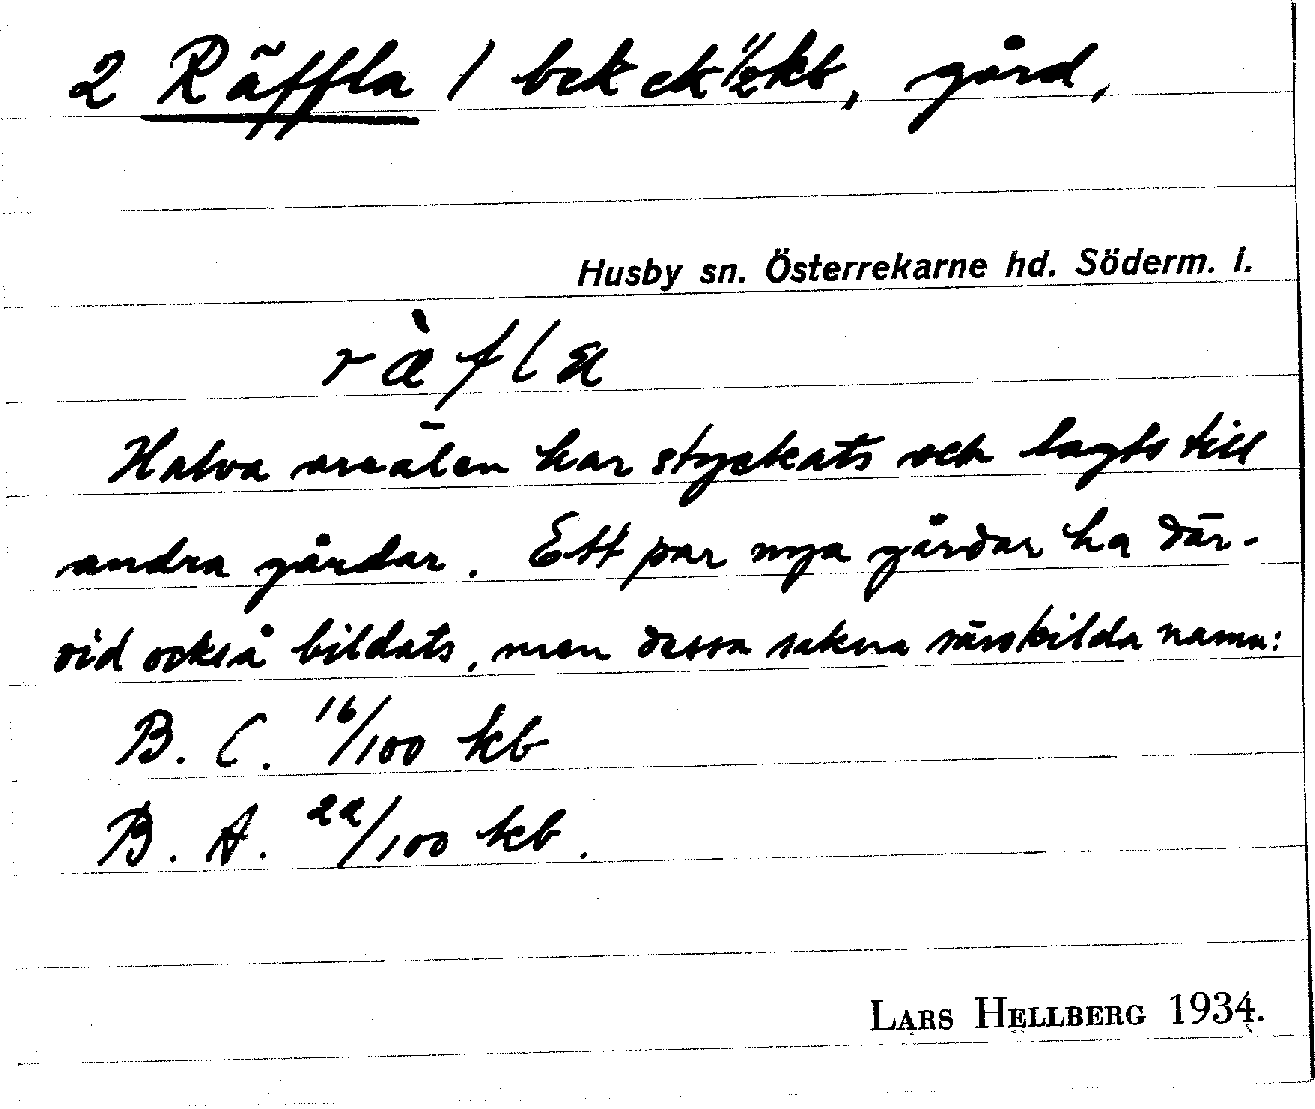 2 Räffla / bek ek 1/2 kb, gård,
Husby sn. Österrekarne hd. Söderm. l.
ràfla
Halva arealen har styckats och lagts till
andra gårdar. Ett par nya gårdar ha där-
vid också bildats, men dessa sakna särskilda namn:
B. C. 16/100 kb
B. A. 22/100 kb.
LARS HELLBERG 1934.